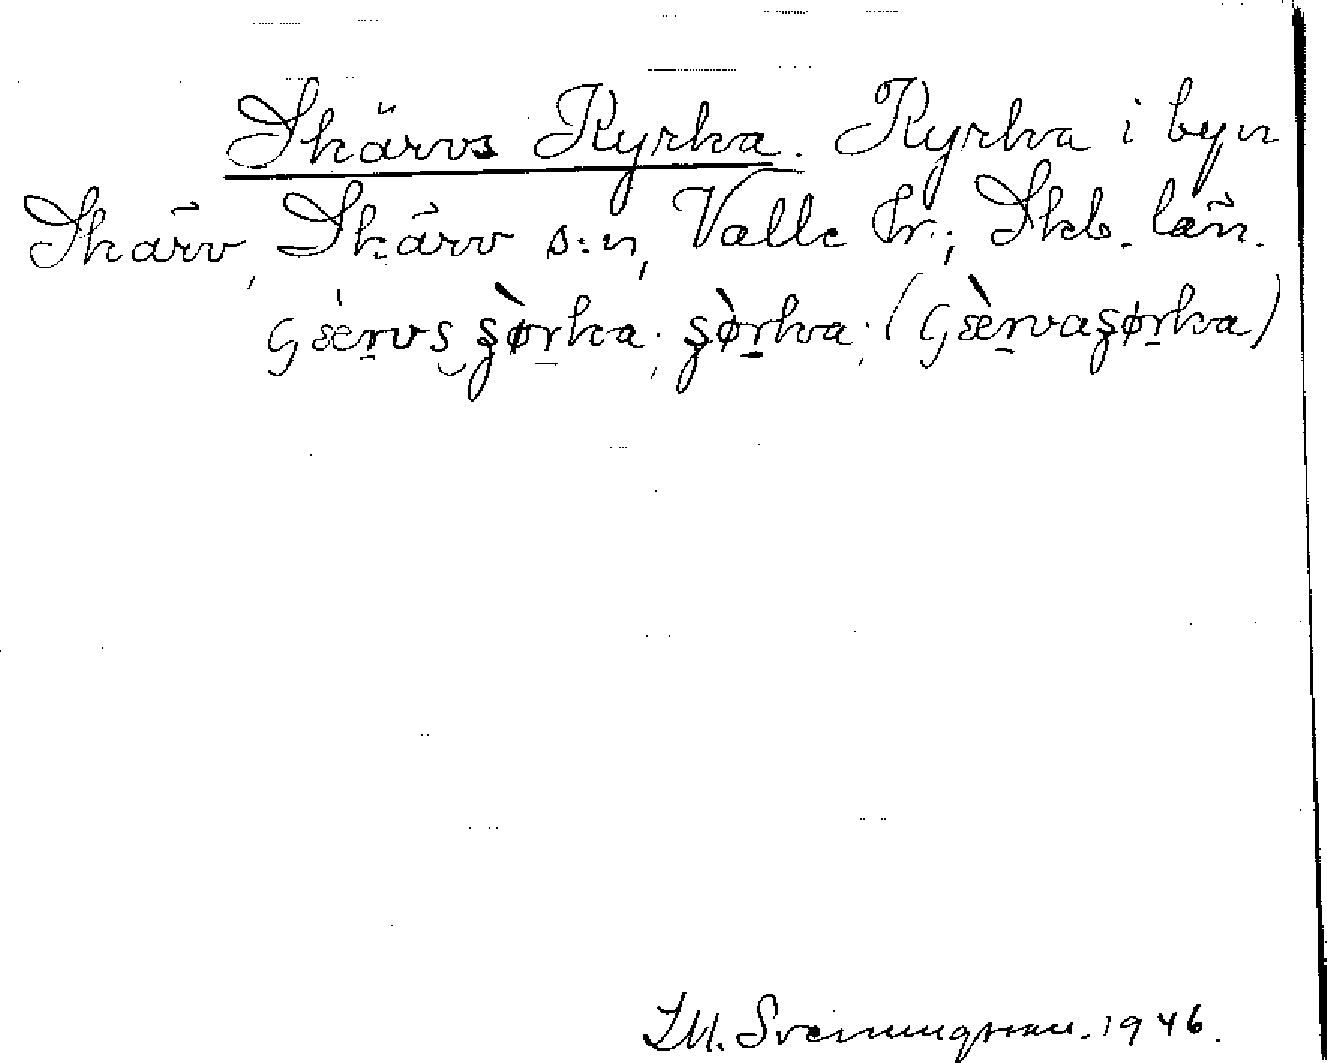 Skärvs Kyrka. Kyrka i byn
Skärv, Skärv s:n, Valle hr; Skb. län.
ʂæ̀rvs ʂø̀rka; ʂø̀rka; (ʂæ̀rvaʂørka)
Sveningsson. 1946.